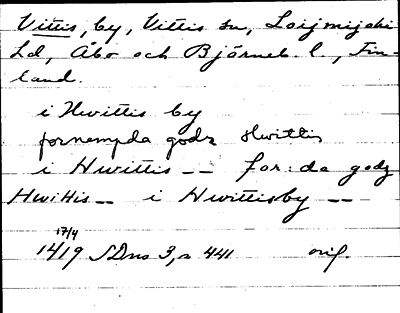 Vittis, by, Vittis sn, Loijmijoki
hd, Åbo och Björneb. l., Fin-
land.
i Hwittis by
fornempda godz Hwittis
i Hwittis -- for:da godz
Hwittis -- i Hwittisby --
17/4
1419 SDns 3, s 441 orig.